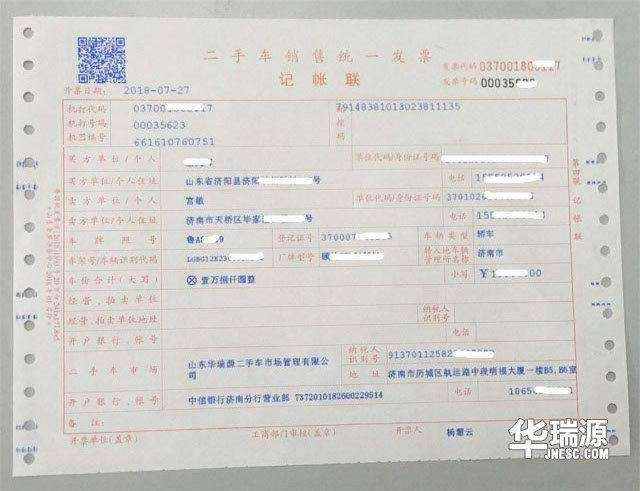 二手车销售统一发票
记帐联
发票代码 037001800
发票号码 00035
开票日期: 2018-07-27
机打代码 0370
机打号码 00035623
机器编号 661610760751
91483810130238​11135
买方单位/个人 单位代码/身份证号码
买方单位/个人住址 山东省济阳县济阳 号 电话
卖方单位/个人 宫敏 单位代码/身份证号码 370102
卖方单位/个人住址 济南市天桥区毕家 号 电话
车牌照号 鲁A 9 登记证号 37000 车辆类型 轿车
车架号/车辆识别代码 LGBG12E23 厂牌型号 转入地车辆管理所名称 济南市
车价合计(大写) ⊗壹万捌仟圆整 小写 ¥1
经营、拍卖单位
经营、拍卖单位地址 纳税人识别号
开户银行、帐号 电话
二手车市场 山东华瑞源二手车市场管理有限公司 纳税人识别号 9137011258
地址 济南市历城区航运路中段梧桐大厦一楼B5,B6室
开户银行、帐号 中信银行济南分行营业部 7372010182600229514 电话 1865
备注:
开票单位(盖章) 工商部门审核(盖章) 开票人 杨慧云
华瑞源
JNESC.COM